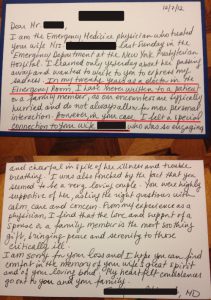 10/2/12
Dear Mr.
I am the Emergency Medicine physician who treated
your wife Mrs. last Sunday in the
Emergency Department at the New York Presbyterian
Hospital. I learned only yesterday about her passing
away and wanted to write to you to express my
sadness. In my twenty years as a doctor in the
Emergency Room, I have never written to a patient
or a family member, as our encounters are typically
hurried and do not always allow for more personal
interaction. However, in your case, I felt a special
connection to your wife who was so engaging
and cheerful in spite of her illness and trouble
breathing. I was also touched by the fact that you
seemed to be a very loving couple. You were highly
supportive of her, asking the right questions with
calm, care and concern. From my experience as a
physician, I find that the love and support of a
spouse or a family member is the most soothing
gift, bringing peace and serenity to those
critically ill.
I am sorry for your loss and I hope you can find
comfort in the memory of your wife's great spirit
and of your loving bond. My heartfelt condolences
go out to you and your family.
MD